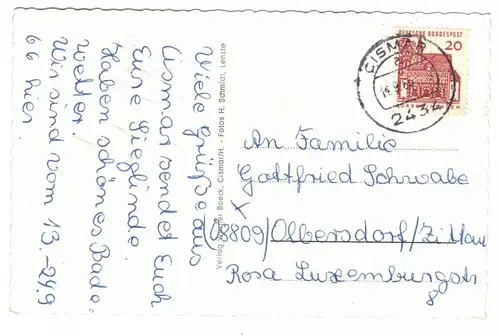 Viele Grüße aus
Cismar sendet Euch
Eure Sieglinde.
Haben schönes Bade
wetter.
Wir sind vom 13.-24.9
66 hier.
Verlag Walter Boeck, Cismar/H. - Fotos H. Schmidt, Lenste
DEUTSCHE BUNDESPOST
20
CISMAR
2431
An Familie
Gottfried Schwabe
x
8809/Olbersdorf/Zittau
Rosa Luxemburgstr
8